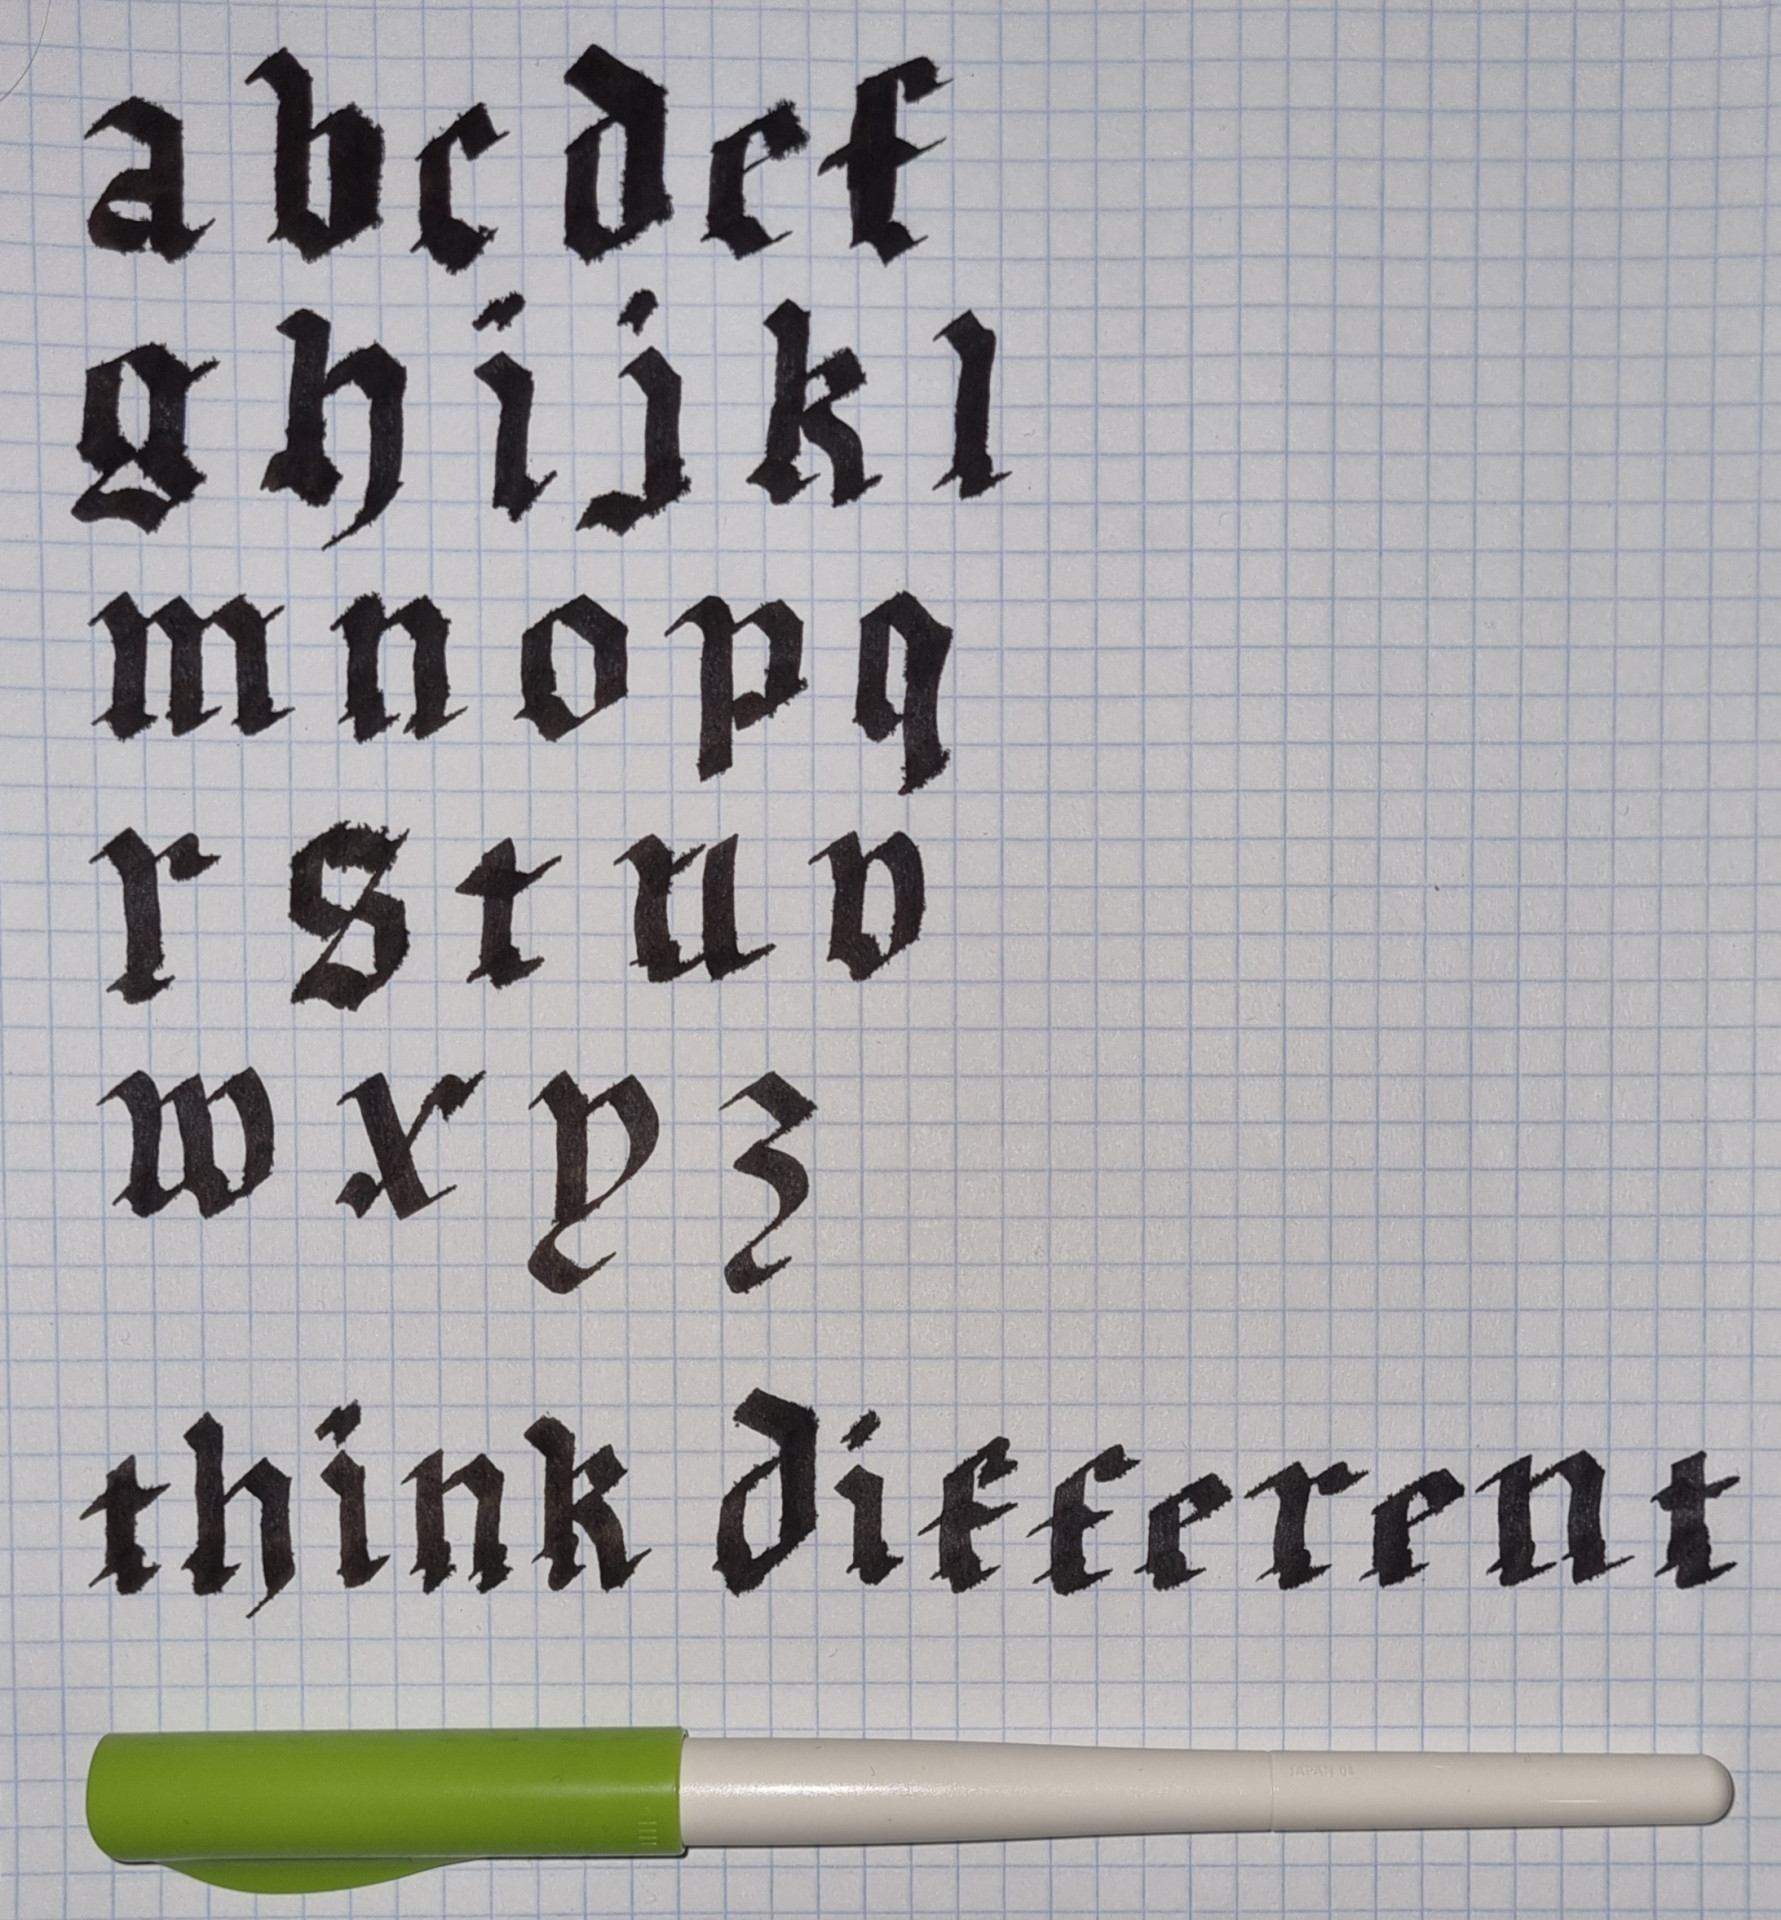 a b c d e f
g h i j k l
m n o p q
r s t u v
w x y z
think different